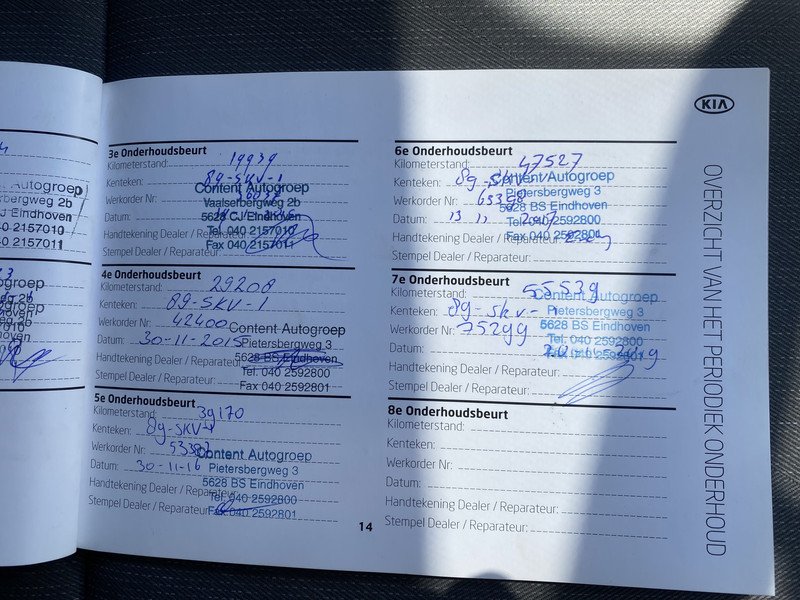 utogroep
rgweg 2b
J Eindhoven
40 2157010
040 2157011
KIA
OVERZICHT VAN HET PERIODIEK ONDERHOUD
3e Onderhoudsbeurt
Kilometerstand: 19939
Kenteken: 89-SKV-1
Content Autogroep
Werkorder Nr:
Vaalserbergweg 2b
Datum:
5628 CJ Eindhoven
Tel. 040 2157010
Handtekening Dealer / Reparateur:
Fax 040 2157011
Stempel Dealer / Reparateur:
4e Onderhoudsbeurt
Kilometerstand: 29208
Kenteken: 89-SKV-1
Werkorder Nr: 42400
Content Autogroep
Datum: 30-11-2015
Pietersbergweg 3
Handtekening Dealer / Reparateur:
5628 BS Eindhoven
Tel. 040 2592800
Stempel Dealer / Reparateur:
Fax 040 2592801
5e Onderhoudsbeurt
Kilometerstand: 39170
Kenteken: 89-SKV-1
Werkorder Nr:
Content Autogroep
Datum: 30-11-16
Pietersbergweg 3
5628 BS Eindhoven
Handtekening Dealer / Reparateur:
Tel. 040 2592800
Stempel Dealer / Reparateur:
Fax 040 2592801
6e Onderhoudsbeurt
Kilometerstand: 47527
Kenteken: 89-SKV-
Content Autogroep
Pietersbergweg 3
Werkorder Nr: 65398
5628 BS Eindhoven
Datum: 13 11 2017
Tel. 040 2592800
Handtekening Dealer / Reparateur:
Fax 040 2592801
Stempel Dealer / Reparateur:
7e Onderhoudsbeurt
Kilometerstand: 55539
Content Autogroep
Kenteken: 89-SKV-
Pietersbergweg 3
Werkorder Nr: 75299
5628 BS Eindhoven
Tel. 040 2592800
Datum:
Handtekening Dealer / Reparateur:
Stempel Dealer / Reparateur:
8e Onderhoudsbeurt
Kilometerstand:
Kenteken:
Werkorder Nr:
Datum:
Handtekening Dealer / Reparateur:
Stempel Dealer / Reparateur:
14